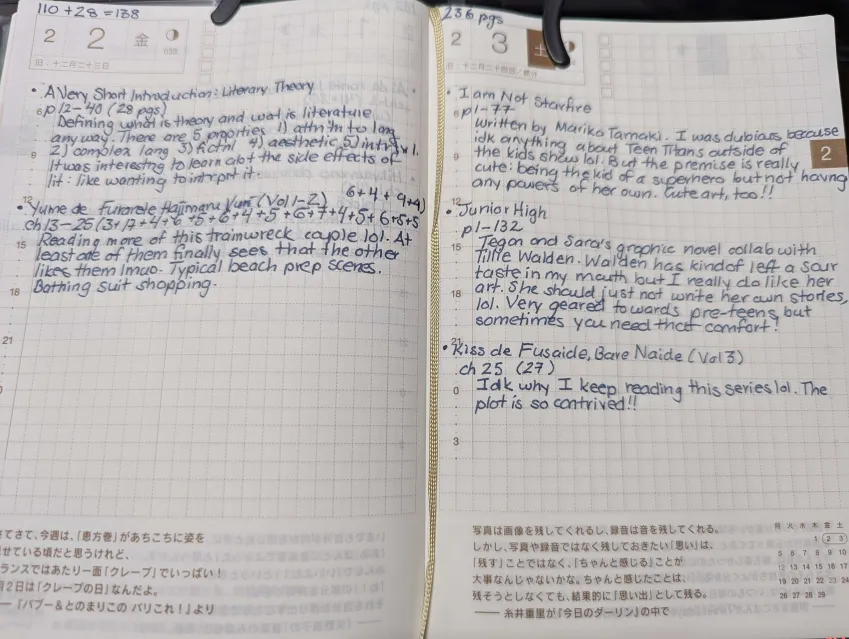 110 + 28 = 138
2 2 金
旧:十二月二十三日
• A Very Short Introduction: Literary Theory
p 12-40 (28 pgs)
Defining what is theory and wat is literature
anyway. There are 5 proprties 1) attn tn to lang
2) complex lang 3) fictnl 4) aesthetic 5) intrtxl.
It was interestng to learn abt the side effects of
lit: like wanting to intrprt it.
6+4+9+4)
• Yume de Furarete Hajimaru Yuri (Vol 1-2)
ch 13-25 (3+17+4+6+5+6+4+5+6+7+4+5+6+5+5
Reading more of this trainwreck couple lol. At
least one of them finally sees that the other
likes them lmao. Typical beach prep scenes.
Bathing suit shopping.
6
9
12
15
18
21
さてさて、今週は、「恵方巻」があちこちに姿を
せている頃だと思うけれど、
ランスではあたり一面「クレープ」でいっぱい！
月2日は「クレープの日」なんだよ。
──『バブー&とのまりこの パリこれ！』より
236 pgs
2 3 土
旧:十二月二十四日/節分
2
• I am Not Starfire
p1-77
Written by Mariko Tamaki. I was dubious because
idk anything about Teen Titans outside of
the kids show lol. But the premise is really
cute: being the kid of a superhero but not havng
any powers of her own. Cute art, too!!
• Junior High
p1-132
Tegan and Sara's graphic novel collab with
Tillie Walden. Walden has kindof left a sour
taste in my mouth but I really do like her
art. She should just not write her own stories,
lol. Very geared towards pre-teens, but
sometimes you need that comfort!
• Kiss de Fusaide, Bare Naide (Vol 3)
ch 25 (27)
Idk why I keep reading this series lol. The
plot is so contrived!!
6
9
12
15
18
21
0
3
写真は画像を残してくれるし、録音は音を残してくれる。
しかし、写真や録音ではなく残しておきたい「思い」は、
「残す」ことではなく、「ちゃんと感じる」ことが
大事なんじゃないかな。ちゃんと感じたことは、
残そうとしなくても、結果的に「思い出」として残る。
──糸井重里が『今日のダーリン』の中で
月 火 水 木 金 土
1 2 3
5 6 7 8 9 10
12 13 14 15 16 17
19 20 21 22 23 24
26 27 28 29